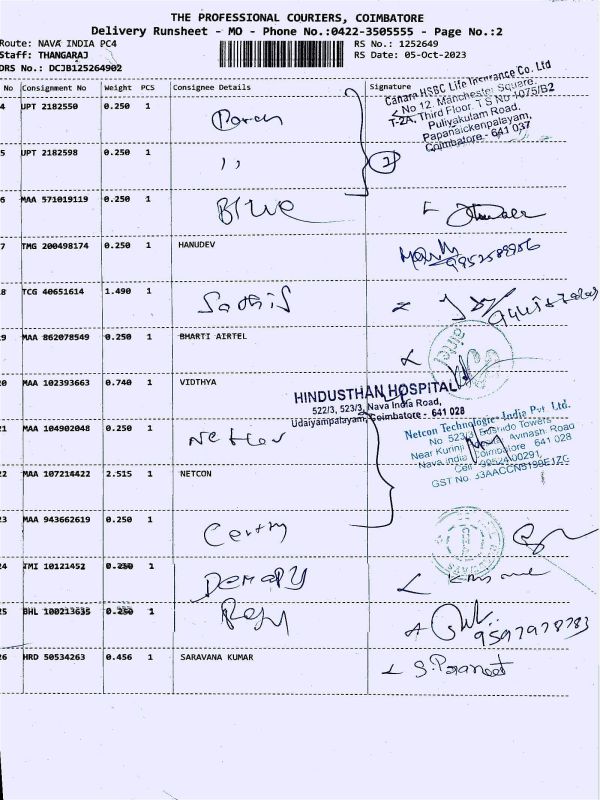 THE PROFESSIONAL COURIERS, COIMBATORE
Delivery Runsheet - MO - Phone No.:0422-3505555 - Page No.:2
Route: NAVA INDIA PC4
RS No.: 1252649
Staff: THANGARAJ
RS Date: 05-Oct-2023
DRS No.: DCJB125264902
No Consignment No Weight PCS Consignee Details Signature
Canara HSBC Life Insurance Co. Ltd
No 12, Manchester Square,
T-2A, Third Floor, T S No 1075/B2
Puliyakulam Road,
Papanaickenpalayam,
Coimbatore - 641 037
4 UPT 2182550 0.250 1
5 UPT 2182598 0.250 1 ,,
6 MAA 571019119 0.250 1 Blue
7 TMG 200498174 0.250 1 HANUDEV
8 TCG 40651614 1.490 1 Sathis
9 MAA 862078549 0.250 1 BHARTI AIRTEL
airtel
0 MAA 102393663 0.740 1 VIDTHYA
HINDUSTHAN HOSPITAL
522/3, 523/3, Nava India Road,
Udaiyampalayam, Coimbatore - 641 028
1 MAA 104902048 0.250 1
Netcon Technologies India Pvt. Ltd.
No 523/3, Towers
Near Kurinji Avinash Road
Nava India Coimbatore 641 028
Cell 99524 00291,
GST No. 33AACCN5199E1ZG
2 MAA 107214422 2.515 1 NETCON
3 MAA 943662619 0.250 1
4 IMI 10121452 0.250 1
5 BHL 100213635 0.250 1
9597978783
6 HRD 50534263 0.456 1 SARAVANA KUMAR S. Praneet